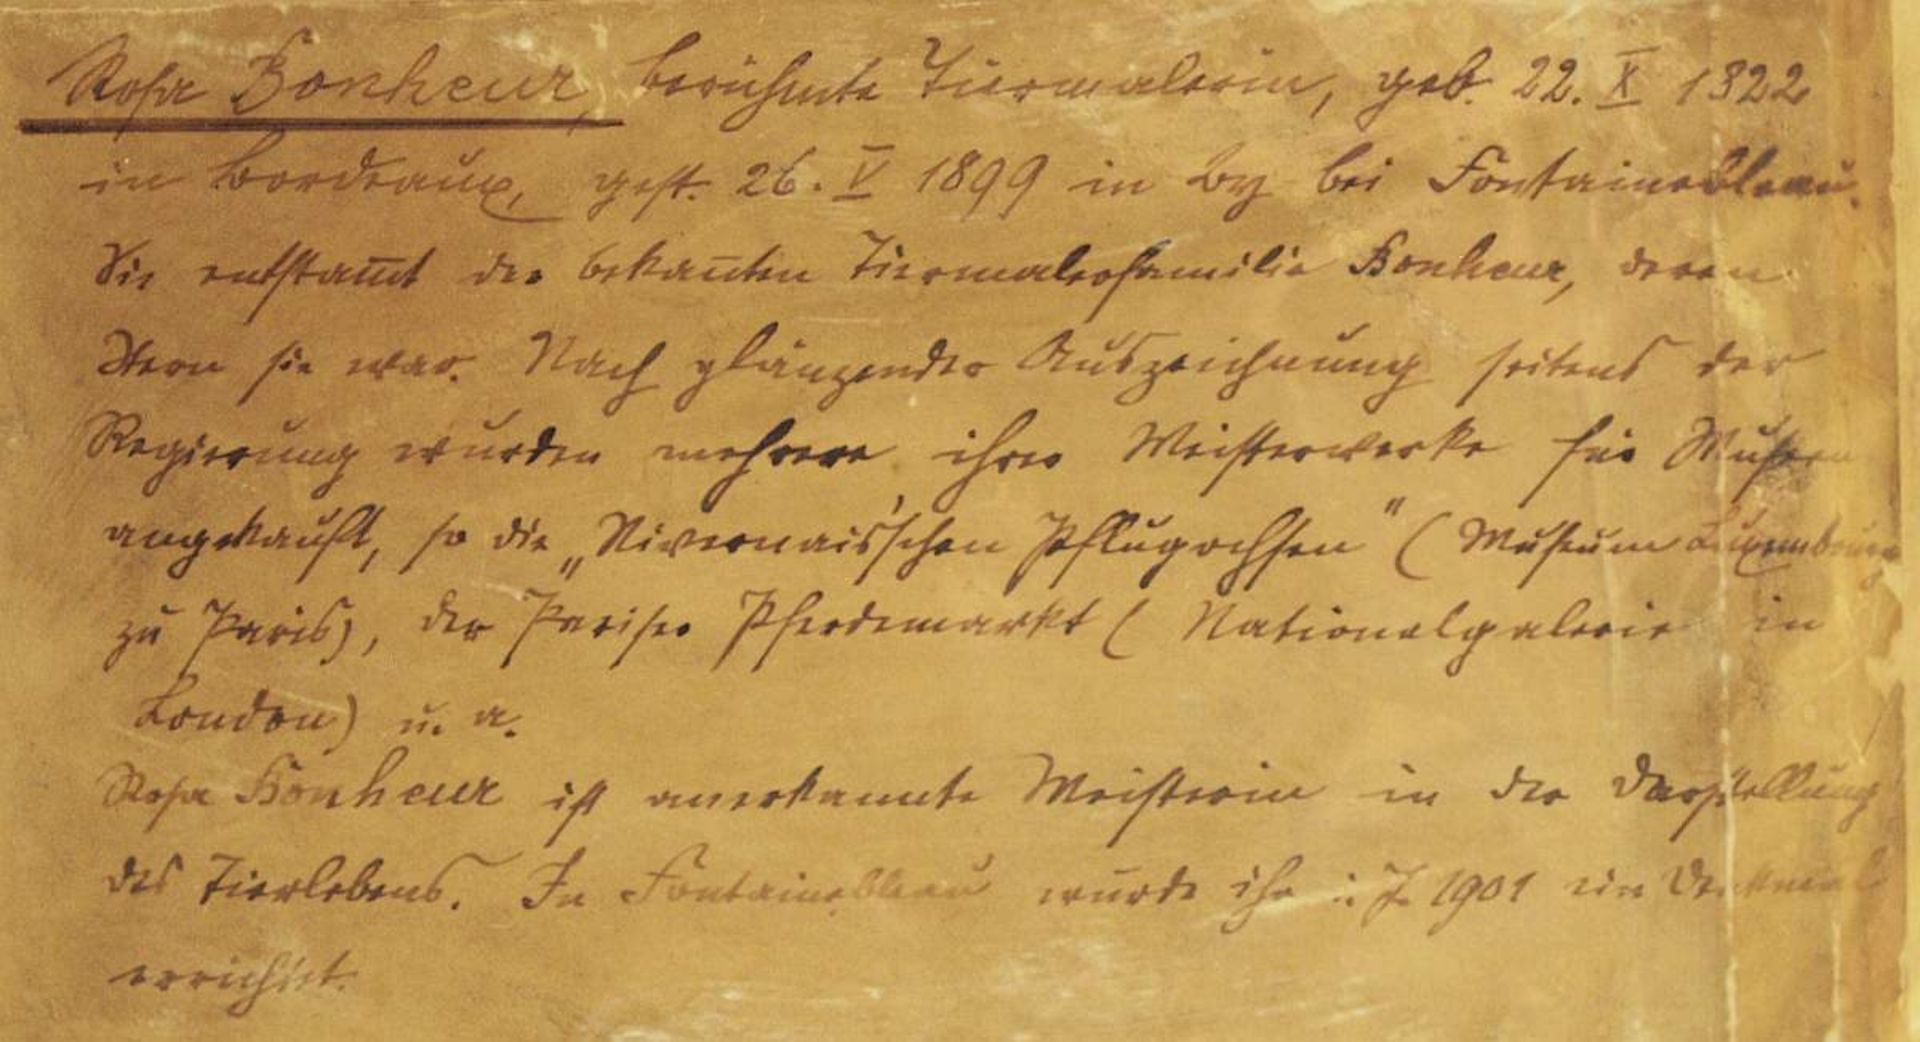 Rosa Bonheur, berühmte Tiermalerin, geb. 22. X 1822
in Bordeaux, gest. 26. V 1899 in By bei Fontainebleau.
Sie entstam̄t der bekan̄ten Tiermalerfamilie Bonheur, deren
Stern sie war. Nach glänzender Auszeichnung seitens der
Regierung wurden mehrere ihrer Meisterwerke für Museen
angekauft, so die „Nivernais'schen Pflugochsen" (Museum Luxembourg
zu Paris), der Pariser Pferdemarkt (Nationalgalerie in
London) u. a.
Rosa Bonheur ist anerkannte Meisterin in der Darstellung
des Tierlebens. In Fontainebleau wurde ihr i. J. 1901 ein Denkmal
errichtet.